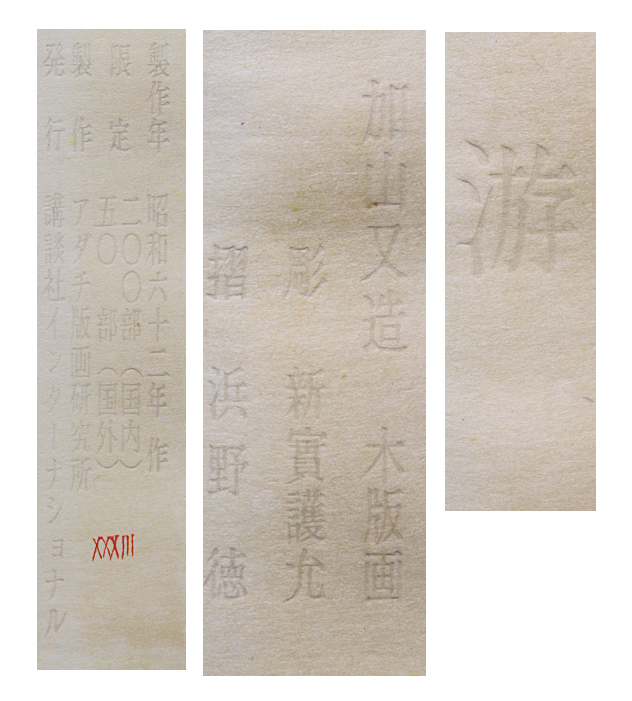 游
加山又造 木版画
彫 新實護允
摺 浜野 徳
製作年 昭和六十二年 作
限 定 二〇〇部 (国内)
五〇 部 (国外)
製 作 アダチ版画研究所
発 行 講談社インターナショナル
XXXIII